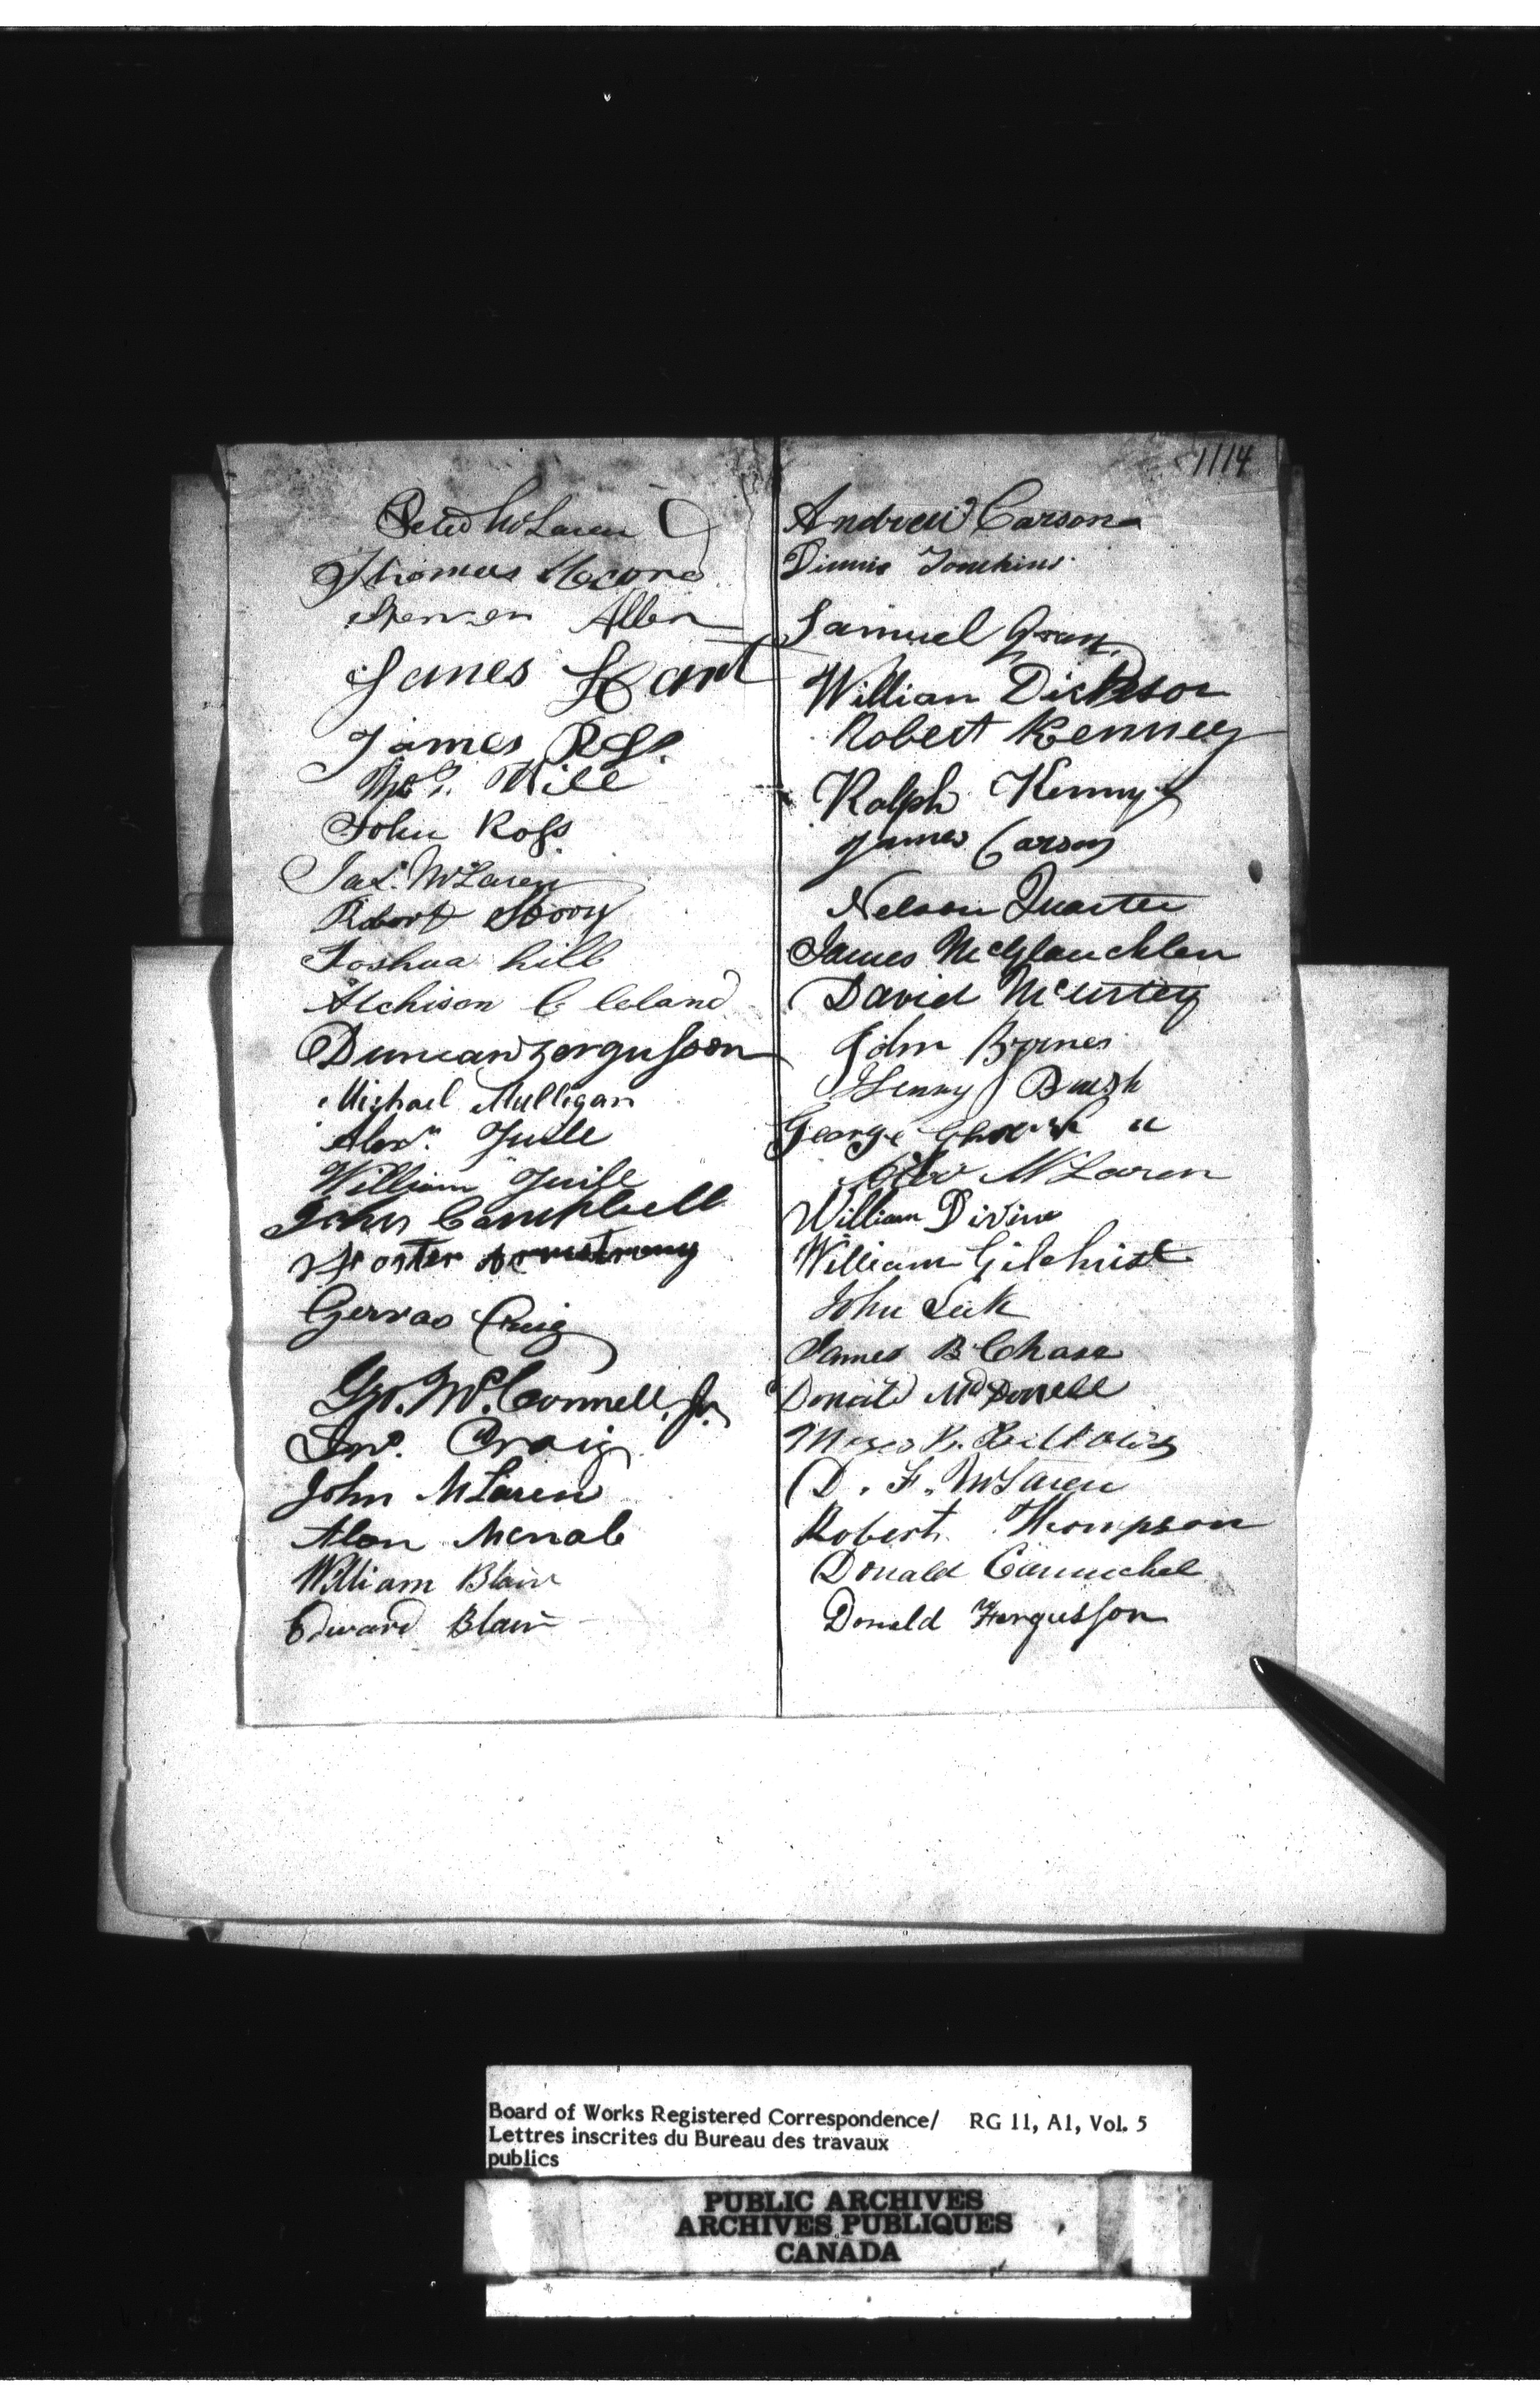 1114
Peter McLaren
Thomas
Allen
James Hart
James
Hill
John Ross
Jas. McLaren
Robert Story
Joshua hill
Atchison C leland
Duncan Fergusson
Michael Mulligan
Alexr. Guile
William Guile
John Campbell
Forster Armstrong
Gervas Craig
Geo. McConnell Jr.
Jno. Craig
John McLaren
Alan Mcnab
William Blair
Edward Blair
Andrew Carson
Dinnis Tomkins
Samuel Gray
William Dickson
Robert Kenney
Ralph Kenny
James Carson
Nelson
James McGlauchlen
David McCurtey
John Byrnes
Henry Bush
George "
McLaren
William Divine
William Gilchrist
John Leek
James B Chase
Donald McDonell
Moses
D. F. McLaren
Robert Thompson
Donald Carmichel
Donald Fergusson
Board of Works Registered Correspondence/ RG 11, A1, Vol. 5
Lettres inscrites du Bureau des travaux
publics
PUBLIC ARCHIVES
ARCHIVES PUBLIQUES
CANADA